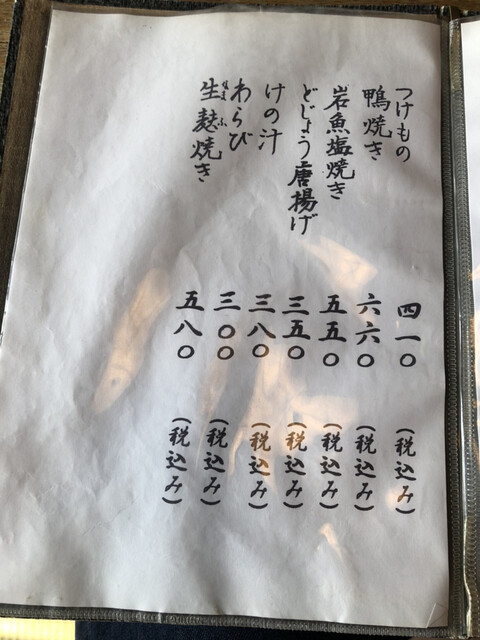 つけもの 四一〇 (税込み)
鴨焼き 六六〇 (税込み)
岩魚塩焼き 五五〇 (税込み)
どじょう唐揚げ 三五〇 (税込み)
けの汁 三八〇 (税込み)
わらび 三〇〇 (税込み)
生麩焼き 五八〇 (税込み)
なまふ